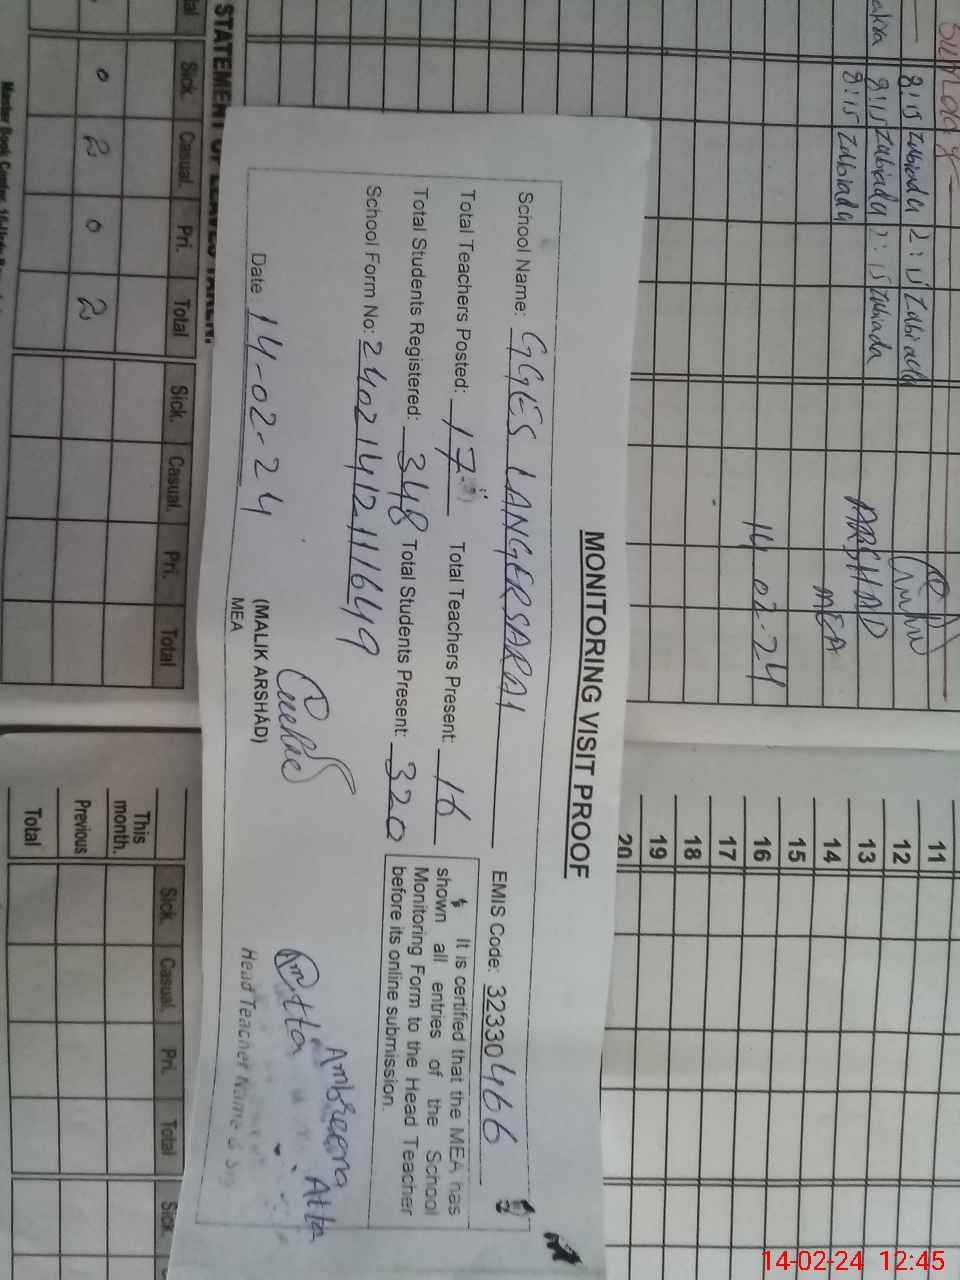 MONITORING VISIT PROOF
School Name: GGES LANGERSARAI EMIS Code: 32330466
Total Teachers Posted: 17 Total Teachers Present: 16
Total Students Registered: 348 Total Students Present: 320
School Form No: 2402141211649
It is certified that the MEA has
shown all entries of the School
Monitoring Form to the Head Teacher
before its online submission.
Date: 14-02-24
(MALIK ARSHAD)
MEA
Ambreena Atta
Atta
Head Teacher Name & Sig
8:15 Zabiada 2:15 Zabiada
8:15 Zabiada 2:15 Zabiada
8:15 Zabiada
ARSHAD
MEA
14 02-24
11
12
13
14
15
16
17
18
19
20
STATEMENT OF LEAVES TAKEN.
Sick. Casual. Pri. Total Sick. Casual. Pri. Total
0 2 0 2
This month.
Previous
Total
Sick. Casual. Pri. Total Sick.
Master Book Center,
14-02-24 12:45